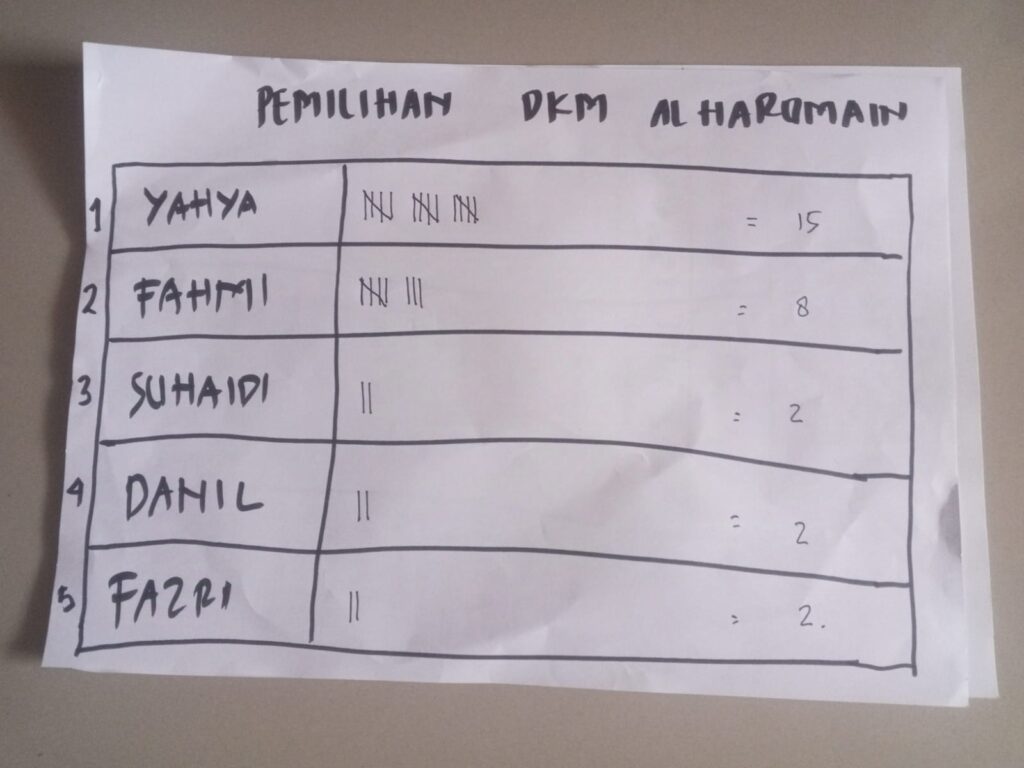 PEMILIHAN DKM AL HAROMAIN
1 YAHYA = 15
2 FAHMI = 8
3 SUHAIDI = 2
4 DANIL = 2
5 FAZRI = 2.